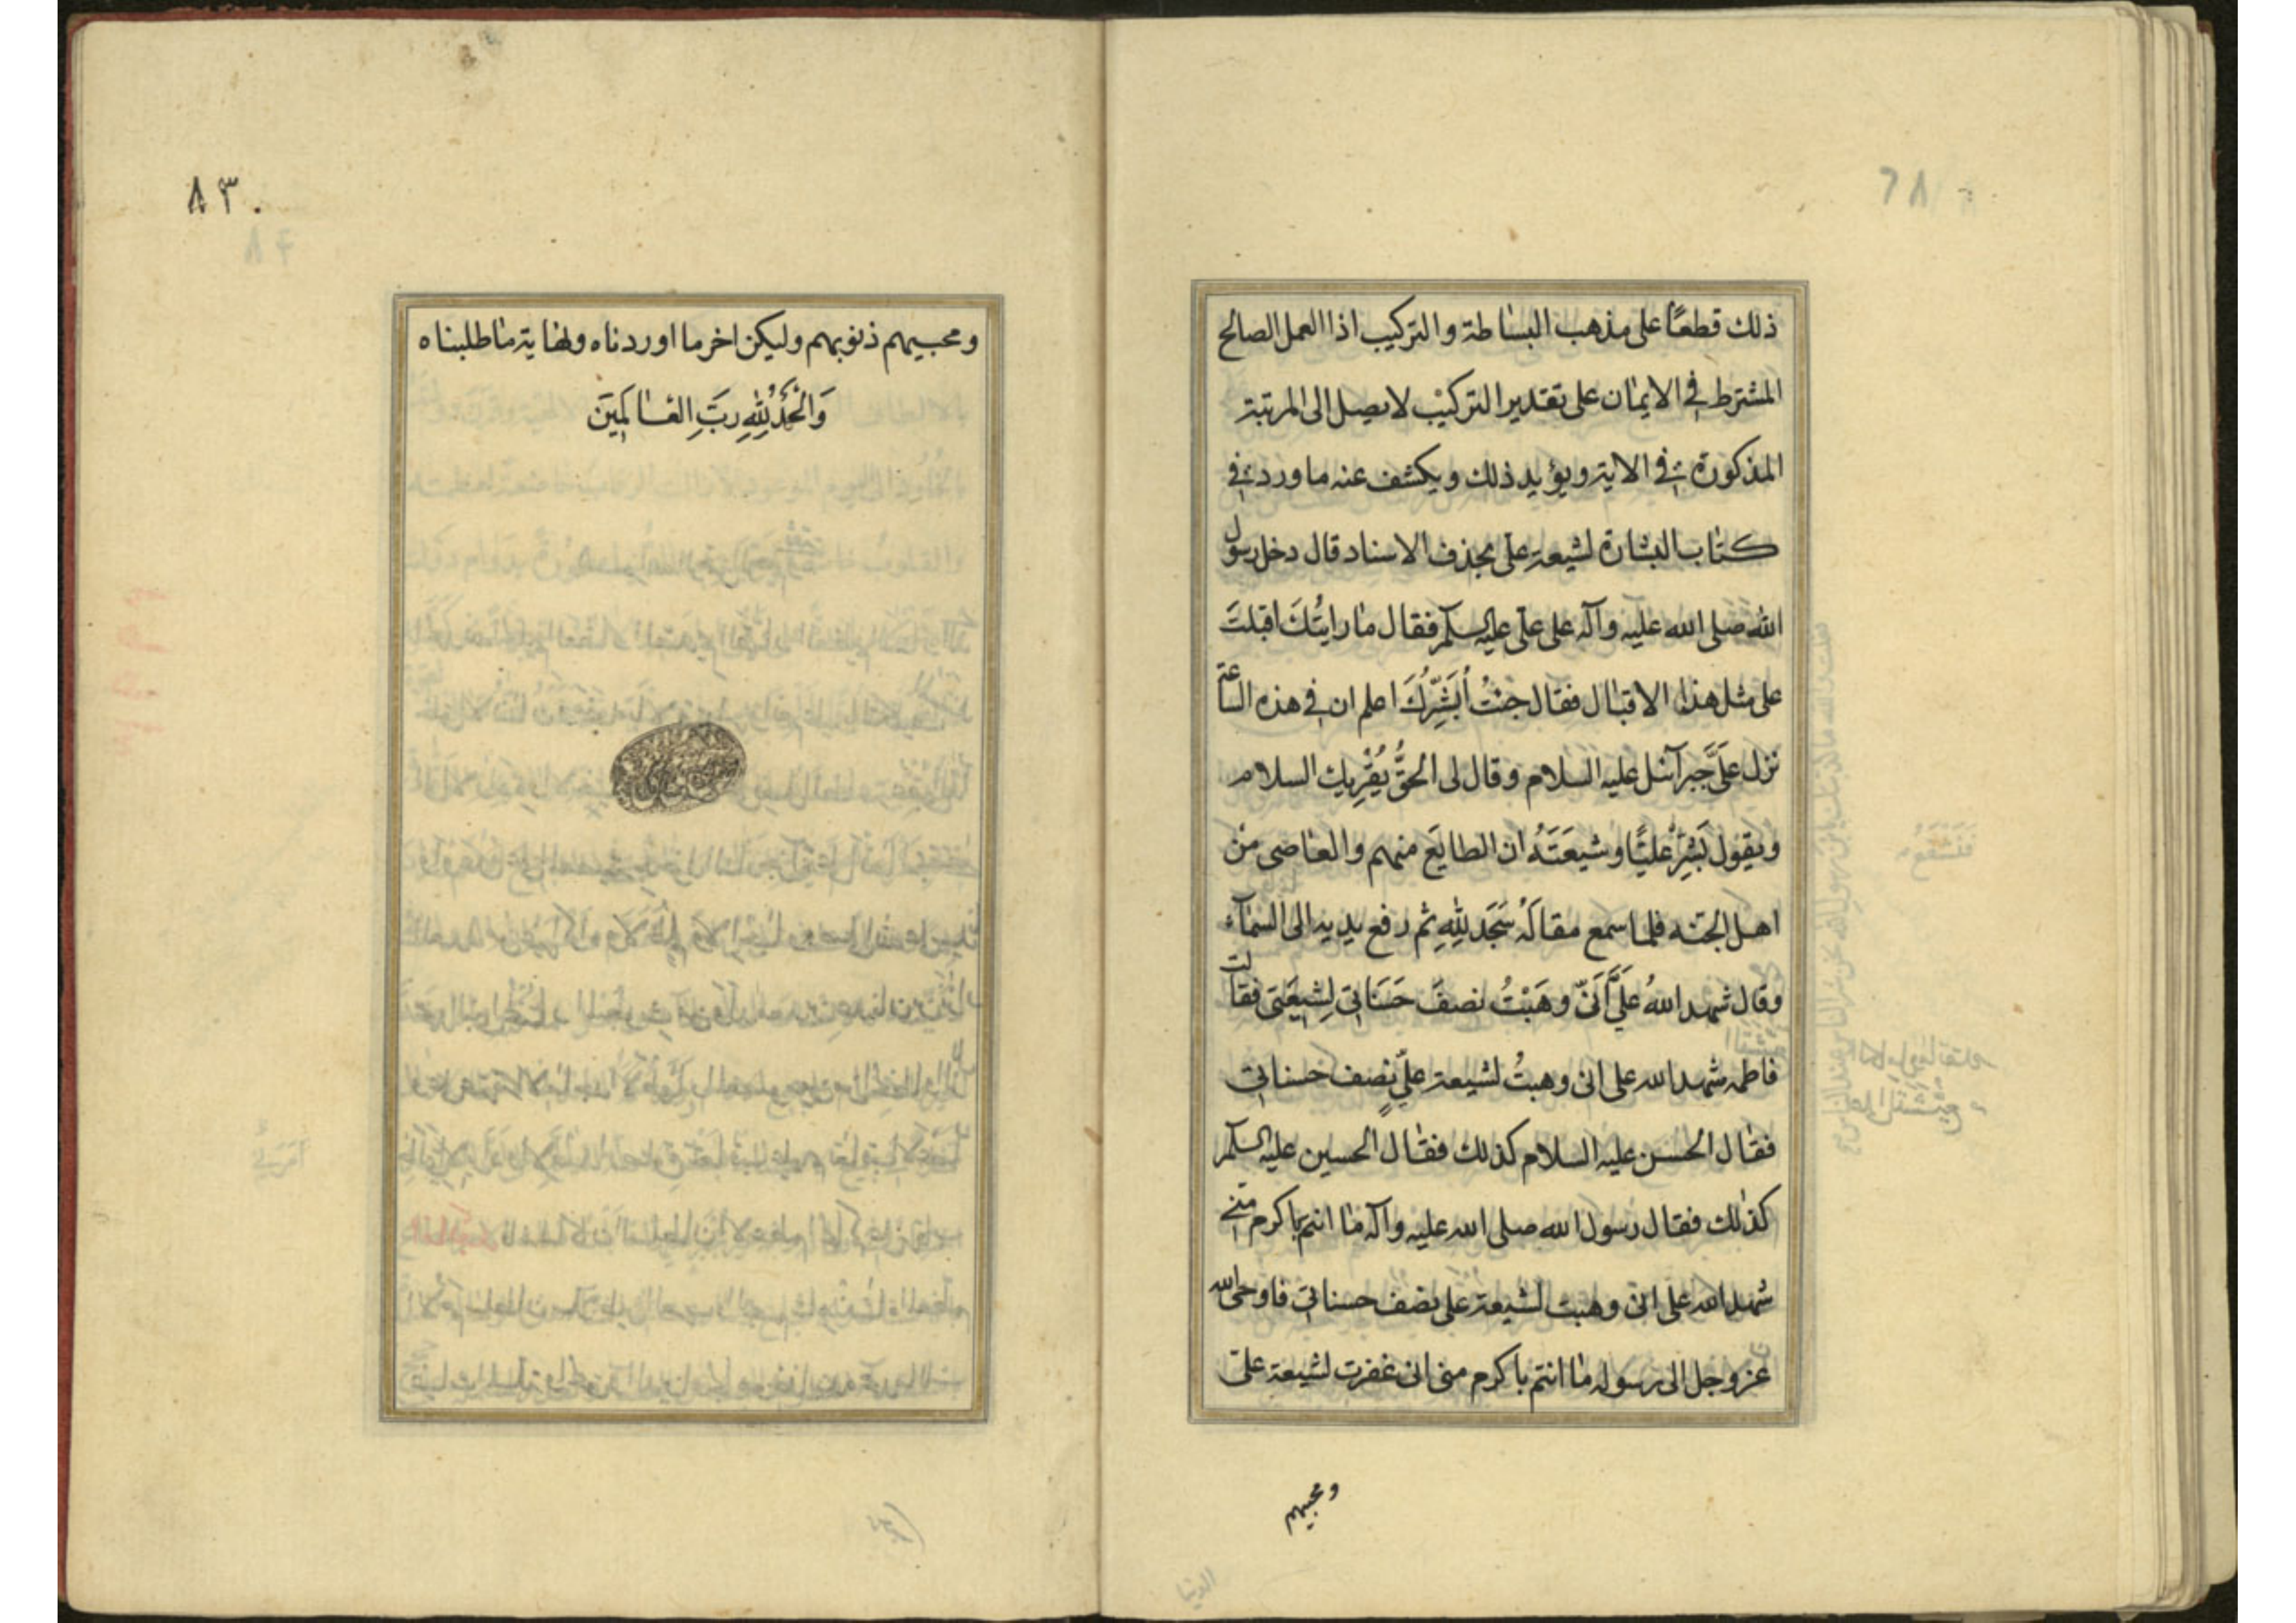 ذلك قطعًا على مذهب البساطة والتركيب اذا العمل الصالح
المشترط في الايمان على تقدير التركيب لا يصل الى المرتبة
المذكورة في الاية ويؤيد ذلك ويكشف عنه ما ورد في
كتاب البشارة لشيعة علي بحذف الاسناد قال دخل رسول
الله صلى الله عليه وآله على علي عليه السلم فقال ما رايتُكَ اقبلتَ
على مثل هذا الاقبال فقال جئتُ أُبَشِّرُكَ اعلم ان في هذه الساعة
نزل عَلَيَّ جبرآئيل عليه السلام وقال لى الحقُّ يُقْرِيك السلام
ويقول بَشِّرْ عليًّا وشيعَتَهُ ان الطايَع منهم والعاصى مِنْ
اهل الجنه فلما سمع مقالَهُ سَجَدَ لِلّٰهِ ثم رفع يديه الى السمآء
وقال شهد اللهُ عَلَيَّ اَنّي وهَبْتُ نصفَ حَسَنَاتي لِشِيعَتي فقالت
فاطمه شهد الله على انى وهبتُ لشيعة عليٍّ نصف حسناتي
فقال الحسن عليه السلام كذلك فقال الحسين عليه السلم
كذلك فقال رسول الله صلى الله عليه وآله ما انتم باكرم منّي
شهد الله على انّى وهبت لشيعة على نصف حسناتي فاوحى الله
عز وجل الى رسوله ما انتم باكرم منى انى غفرت لشيعة علي
ومحبيهم
٨٣
ومحبيهم ذنوبهم وليكن اخر ما اوردناه ونهاية ما طلبناه
وَالْحَمْدُ لِلّٰهِ رَبِّ العٰالَمِينَ